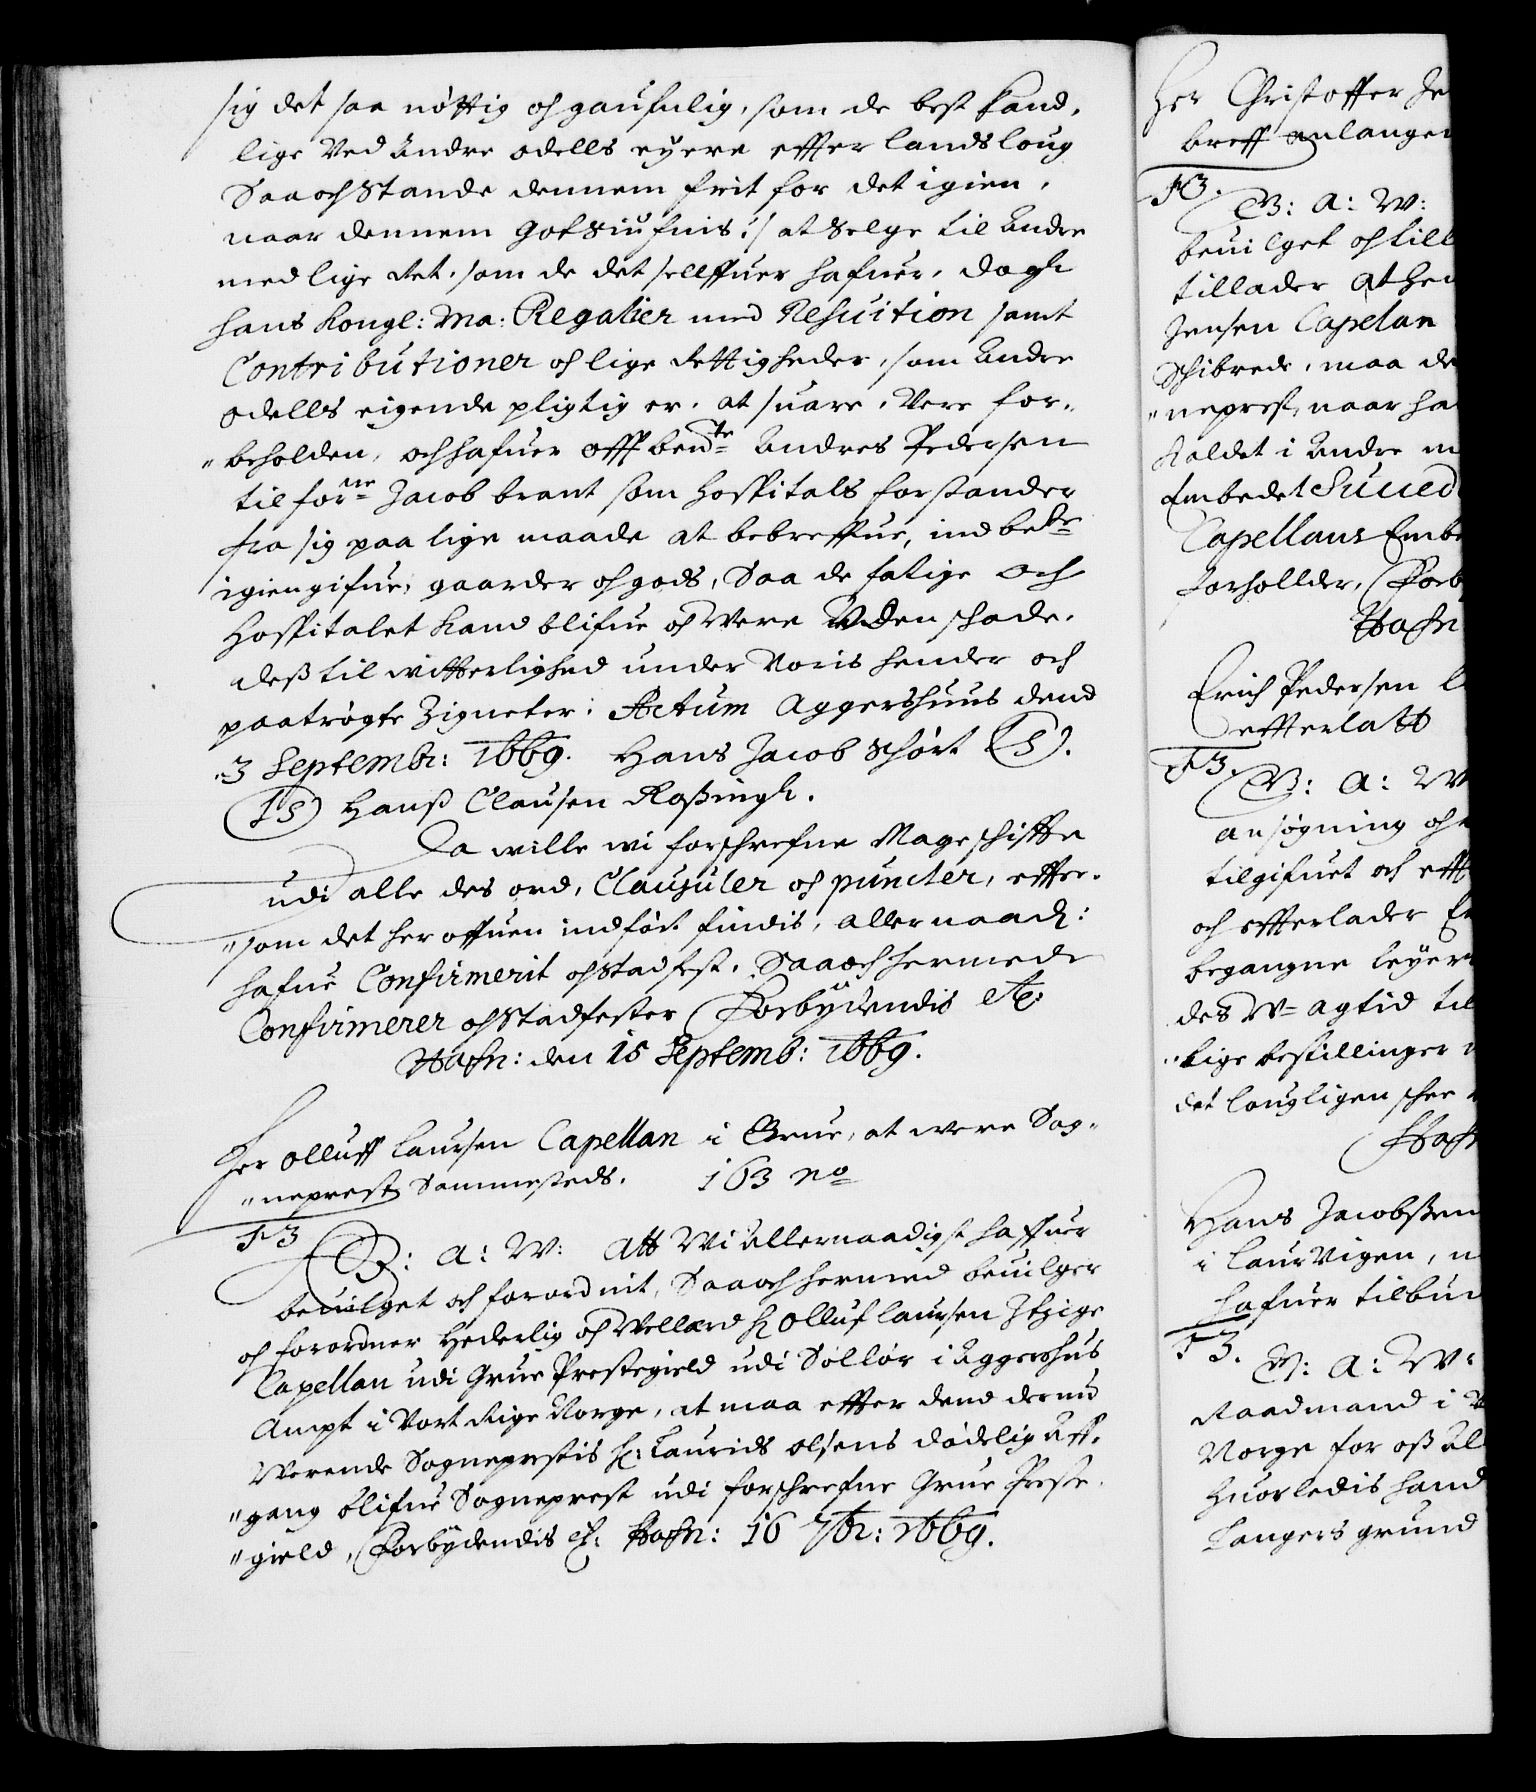 sig det saa nøttig och gaufnlig, som de best kand,
lige ved andre odells eyere effter landsloug
Saa och Stande dennem frit for det igien,
naar dennem got Siufnis :/ at Selge til andre
med lige Ret, som de det sellffuer hafuer, dogh
hans Kongl: Ma: Regalier med Resuition samt
Contributioner och lige Rettigheder, som andre
odells eigende pligtig er, at suare, Vere for-
beholden, och hafuer offbente Andres Pedersen
til forne Jacob brant som Hospitals forstander
fra sig paa lige maade at bebreffue, ind bete
igiengifue, gaarder och gods, Saa de fatige och
Hospitalet kand blifue och Were Uden schade.
dess til witterlighed under Voris hender och
paatrøgte Zigneter: Actum Aggershuus dend
3 Septembr: 1669. Hans Jacob Schørt (LS).
(LS) Hanss Clausen Rossingh.
Da wille wi forschrefne Mageschiffte
udi alle des ord, Clausuler och puncter, effter-
som det her offuen indført findis, allernaadh:
hafue Confirmerit och Stadfest, Saa och hermede
Confirmerer och Stadfester Forbydendis etc:
Hafn: den 15 Septemb: 1669.
Her Olluff Laursen Capellan i Grue, at were Sog-
neprest Sammesteds. 163 no
F3
G: A: W: Att Wi Allernaadigst haffuer
beuilget och forordnit, Saa och hermed beuilger
och forordner Hederlig och Wellærd H Olluf Laursen Itzige
Capellan udi Grue Prestegield udi Sollør i Aggershus
Ampt i Vort Rige Norge, at maa effter dend dernu
Werende Sogneprestis H: Laurids Olsens dødelig Aff-
gang blifue Sogneprest udi forschrefne Grue Preste-
gield, Forbydendis etc: Hafn: 16 7br: 1669.
Her Christoffer Je
breff anlangen
F3.
G: A: W:
beuilget och till
tillader at her
Jensen Capelan
Schibrede, maa de
neprest, naar ha
Kaldet i Andre m
Embedet Succed
Capellans Embe
forhollder, Forb
Hafn
Erich Pedersen l
effterlatt
F3.
G: A: W
ansøgning och
tilgifuet och efft
och effterlader Er
begangne leyer
des W= agtid til
lige bestillinger
det lougligen schee
Hafn
Hans Jacobssen
i Laurvigen, n
hafuer tilbun
F3.
G: A: W:
Raadmand i
Norge for oss al
huorledis hand
Langers grund